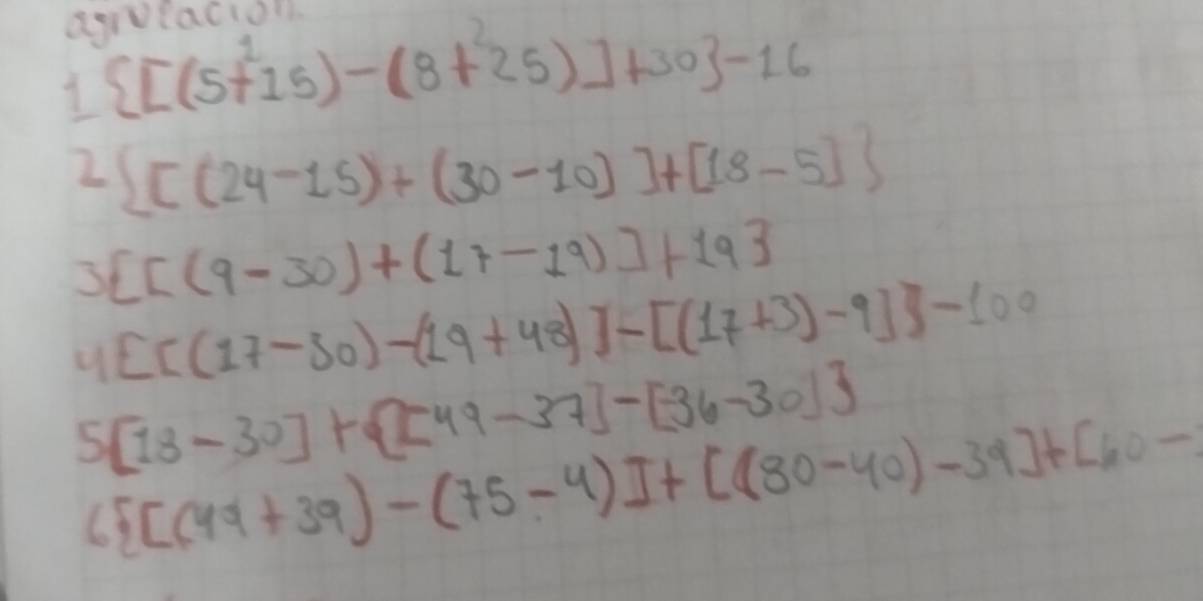 agrupación
1 {[(5+15)-(8+25)]+30}-16
2 {[(24-15)+(30-10)]+[18-5]}
3 {[(9-30)+(17-19)]+19}
4 {[(17-30)-(19+48)]-[(17+3)-9]}-100
5 [18-30]+{[49-37]-[36-30]}
6 {[(49+39)-(75-4)]+[(80-40)-39]+[60-